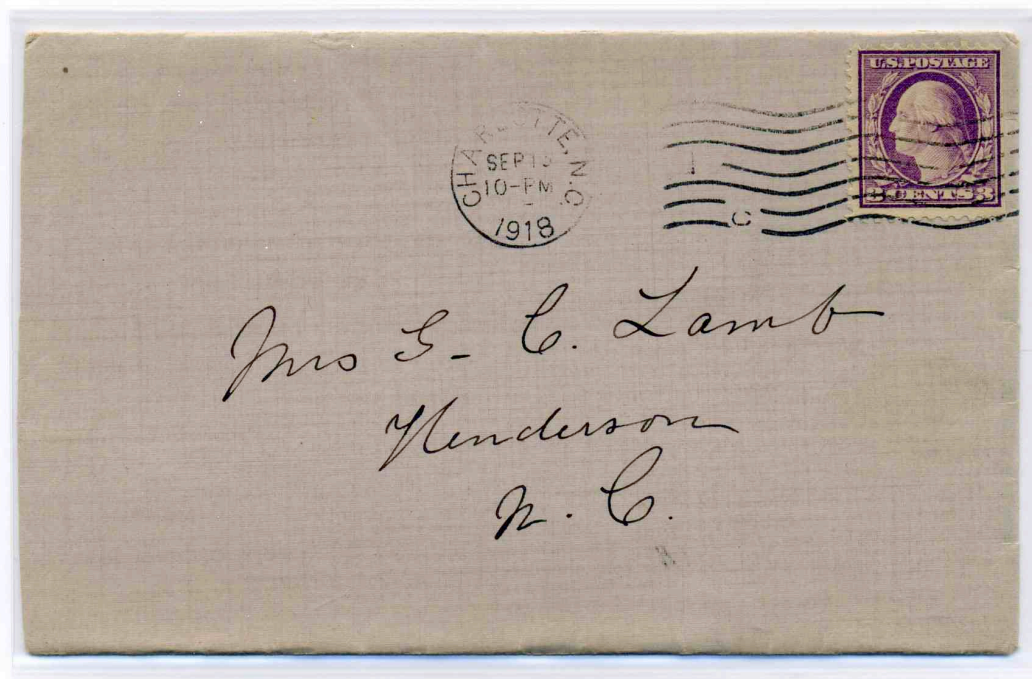 U.S. POSTAGE
3 CENTS 3
CHARLOTTE, N.C.
SEP
10-PM
1918
C
Mrs G- C. Lamb
Henderson
N. C.